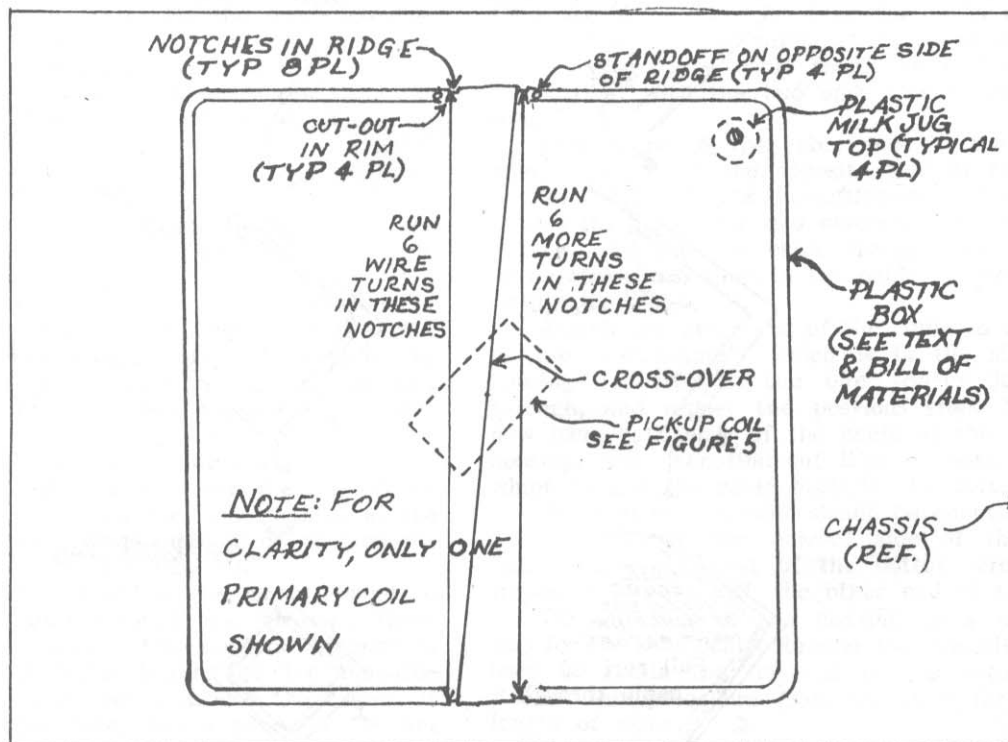 NOTCHES IN RIDGE
(TYP 8 PL)
STANDOFF ON OPPOSITE SIDE
OF RIDGE (TYP 4 PL)
CUT-OUT
IN RIM
(TYP 4 PL)
PLASTIC
MILK JUG
TOP (TYPICAL
4PL)
RUN
6
WIRE
TURNS
IN THESE
NOTCHES
RUN
6
MORE
TURNS
IN THESE
NOTCHES
PLASTIC
BOX
(SEE TEXT
& BILL OF
MATERIALS)
CROSS-OVER
PICK-UP COIL
SEE FIGURE 5
NOTE: FOR
CLARITY, ONLY ONE
PRIMARY COIL
SHOWN
CHASSIS
(REF.)